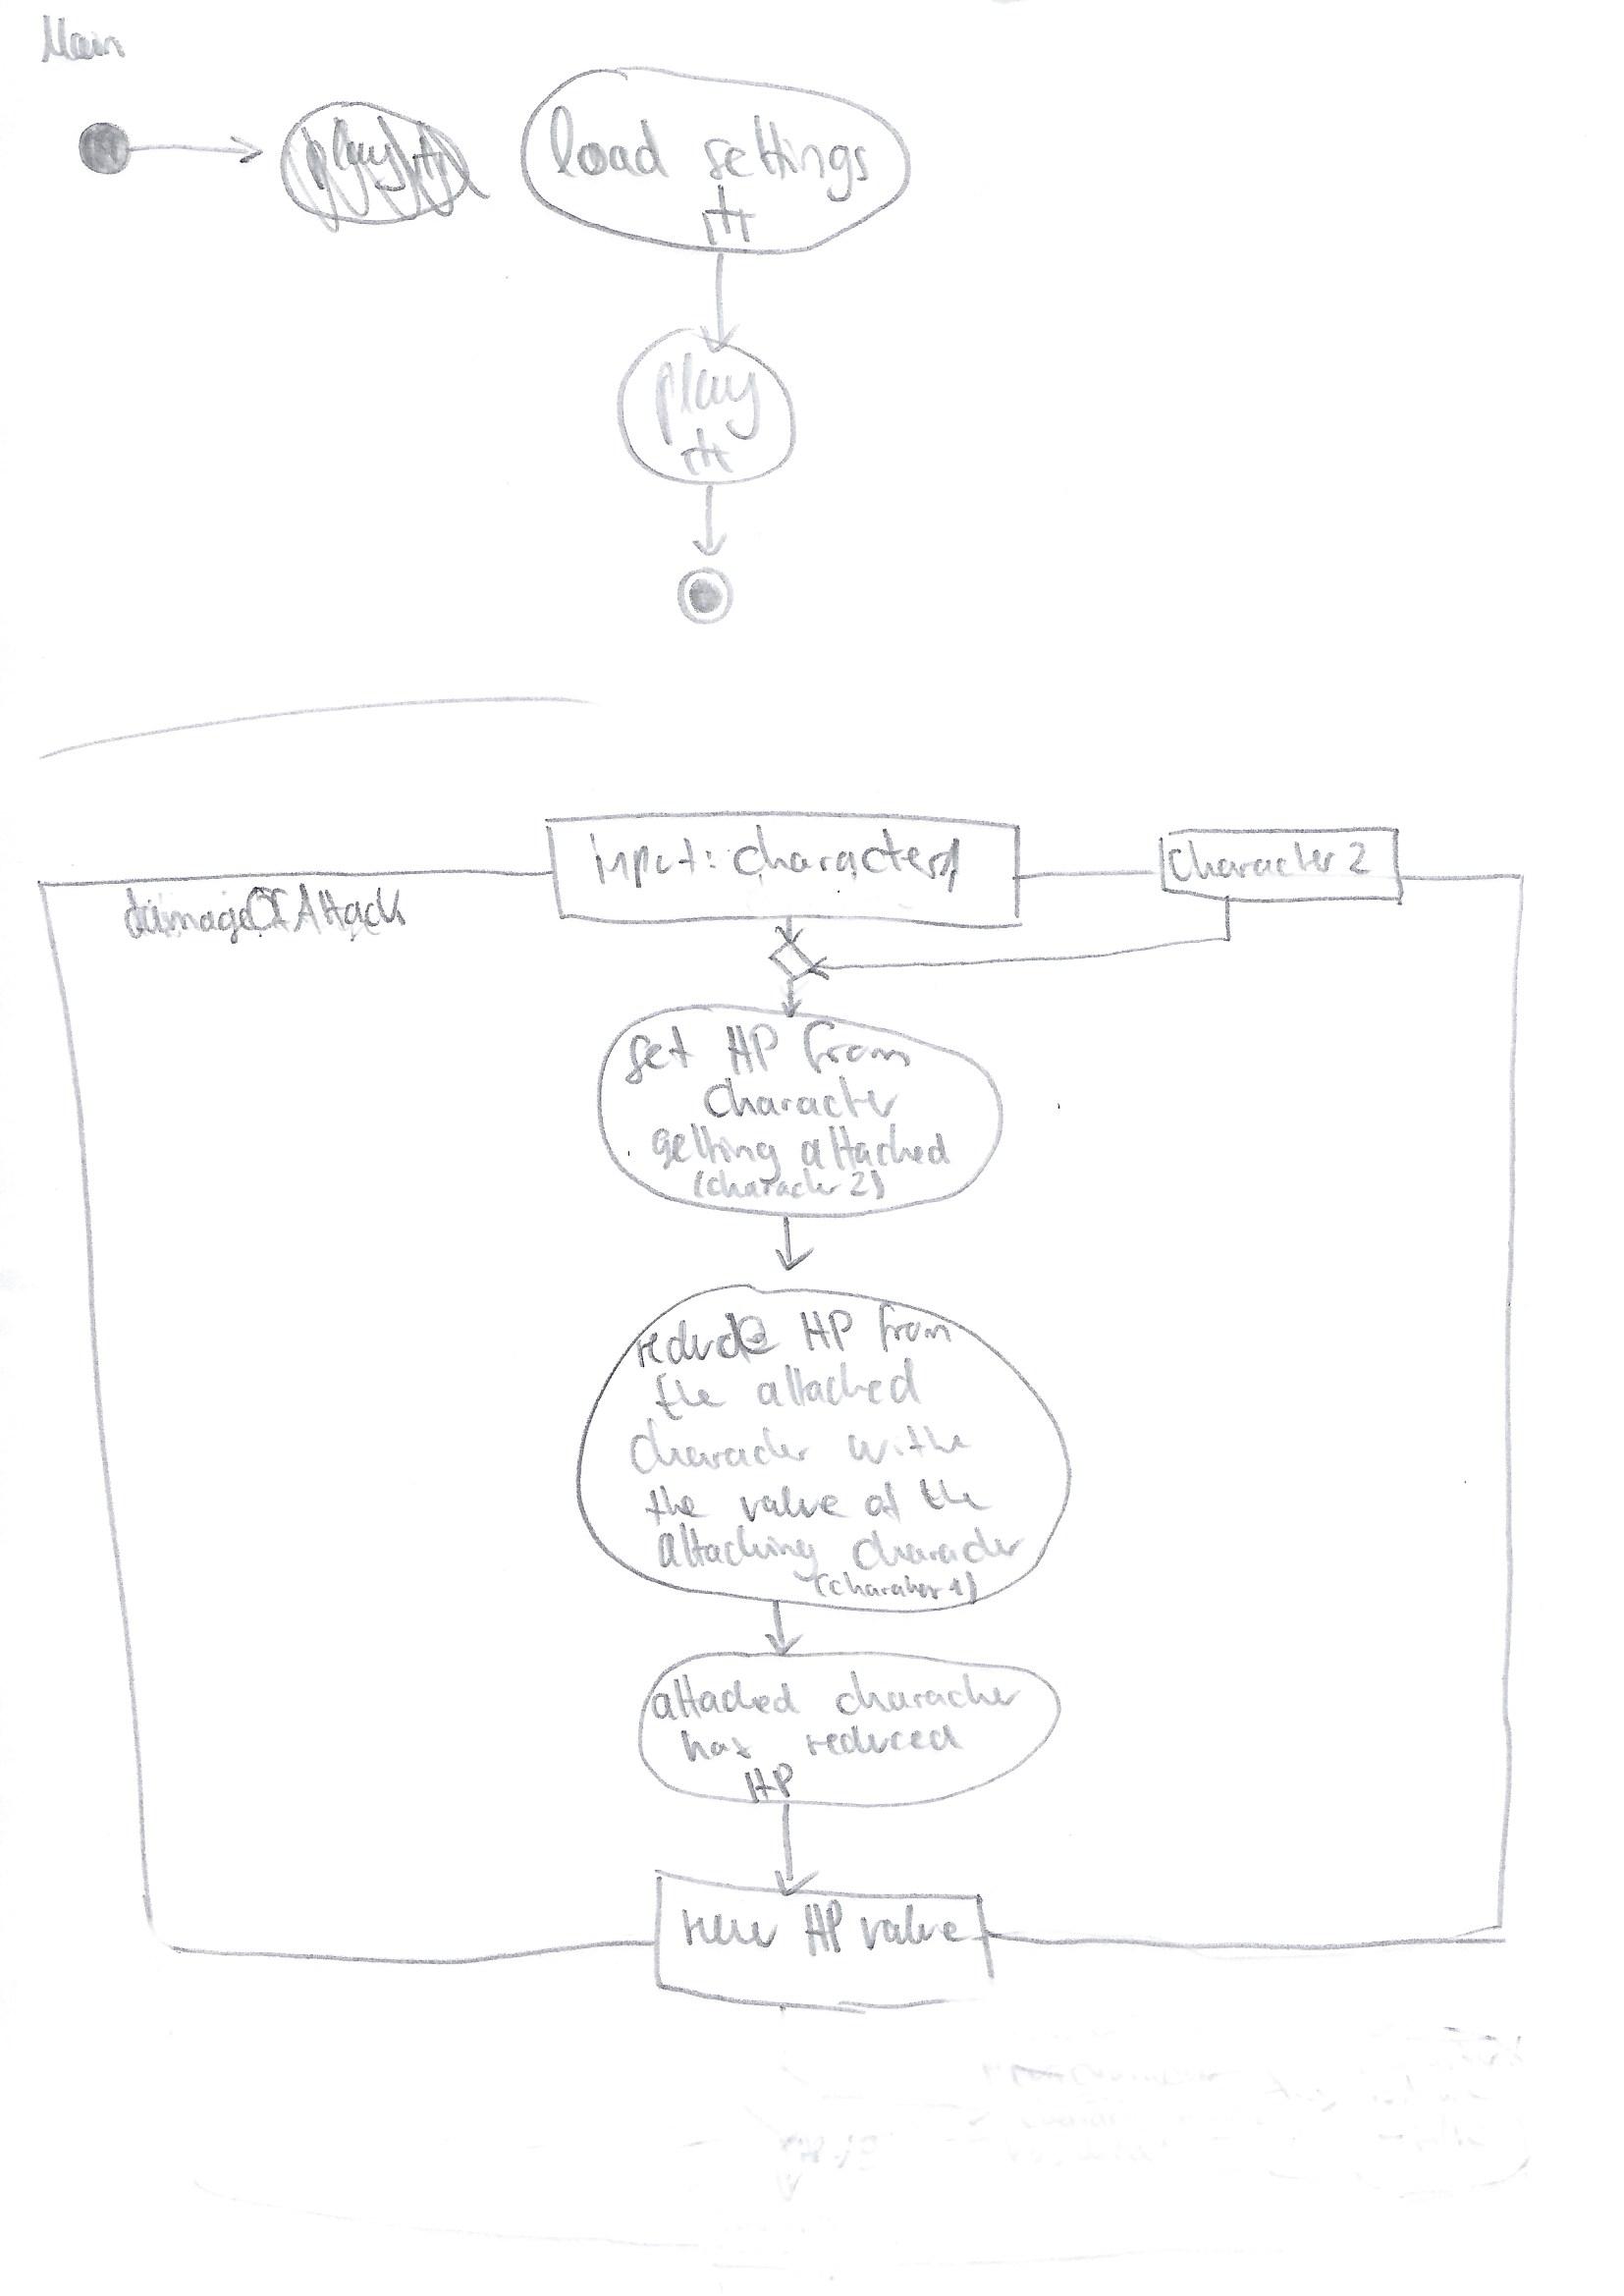 Main
load settings
play
input: character 1
character 2
damageOfAttack
get HP from
character
getting attacked
(character 2)
reduce HP from
the attacked
character withe
the value of the
attacking character
(character 1)
attacked character
has reduced
HP
new HP value